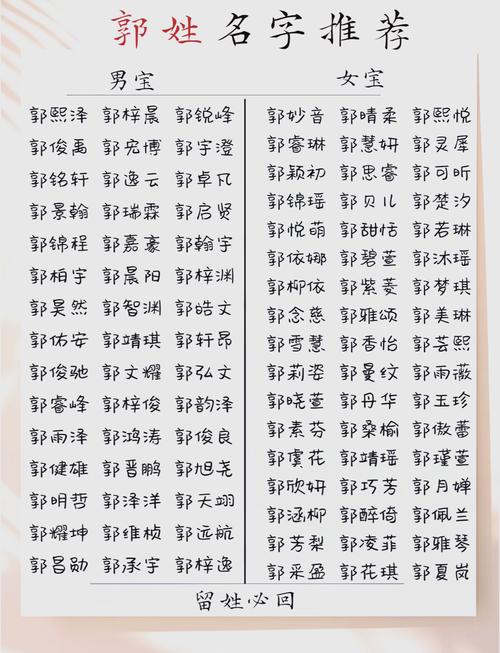 郭姓名字推荐
男宝
郭熙泽 郭梓晨 郭锐峰
郭俊禹 郭宏博 郭宇澄
郭铭轩 郭逸云 郭卓凡
郭景翰 郭瑞霖 郭启贤
郭锦程 郭嘉豪 郭翰宇
郭柏宇 郭晨阳 郭梓渊
郭昊然 郭智渊 郭皓文
郭佑安 郭靖琪 郭轩昂
郭俊驰 郭文耀 郭弘文
郭睿峰 郭梓俊 郭韵泽
郭雨泽 郭鸿涛 郭俊良
郭健雄 郭晋鹏 郭旭尧
郭明哲 郭泽洋 郭天翊
郭耀坤 郭维桢 郭远航
郭昌勋 郭承宇 郭梓逸
女宝
郭妙音 郭晴柔 郭熙悦
郭睿琳 郭慧妍 郭灵犀
郭颖初 郭思睿 郭可昕
郭锦瑶 郭贝儿 郭楚汐
郭悦萌 郭甜恬 郭若琳
郭依娜 郭碧萱 郭沐瑶
郭柳依 郭紫菱 郭梦琪
郭念慈 郭雅颂 郭美琳
郭雪慧 郭香怡 郭芸熙
郭莉姿 郭曼纹 郭雨薇
郭晓萱 郭丹华 郭玉珍
郭素芬 郭桑榆 郭傲蕾
郭虞花 郭靖瑶 郭瑾萱
郭欣妍 郭巧芳 郭月婵
郭涵柳 郭醉倚 郭佩兰
郭芳梨 郭凌菲 郭雅琴
郭采盈 郭花琪 郭夏岚
留姓必回